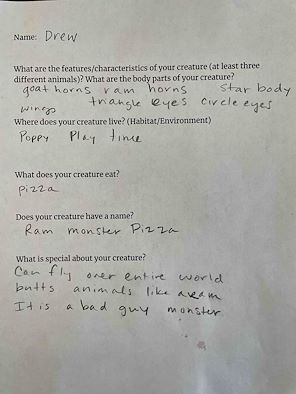 Name: Drew
What are the features/characteristics of your creature (at least three
different animals)? What are the body parts of your creature?
goat horns ram horns star body
wings triangle eyes circle eyes
Where does your creature live? (Habitat/Environment)
Poppy Play time
What does your creature eat?
pizza
Does your creature have a name?
Ram monster Pizza
What is special about your creature?
Can fly over entire world
butts animals like a ram
It is a bad guy monster